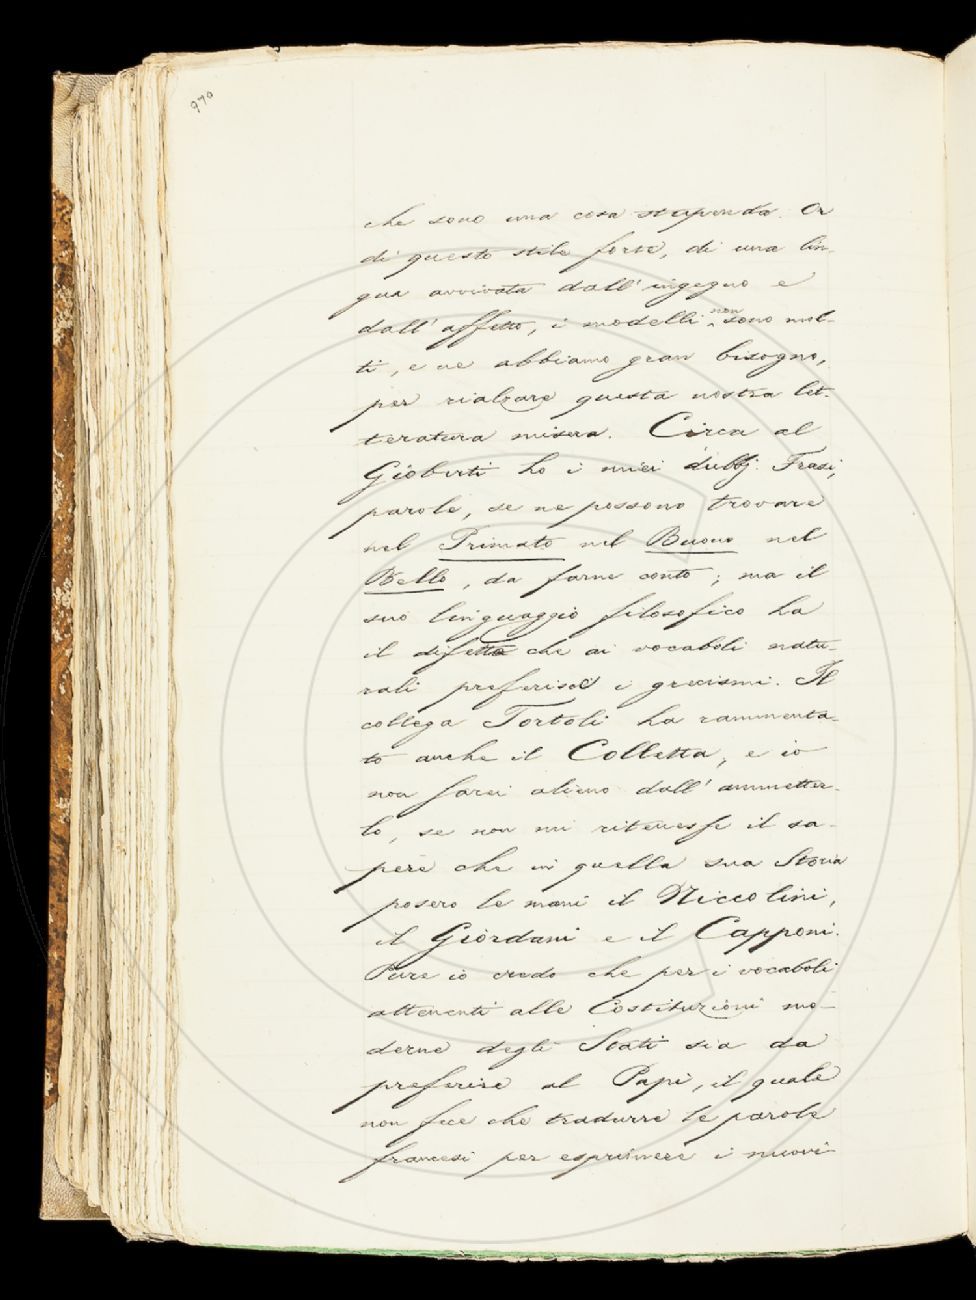 970
che sono una cosa stupenda. Or
di questo stile forte, di una lin-
gua avvivata dall' ingegno e
dall' affetto, i modelli non sono mol-
ti, e ne abbiamo gran bisogno,
per rialzare questa nostra let-
teratura misera. Circa al
Gioberti ho i miei dubbj. Frasi,
parole, se ne possono trovare
nel Primato nel Buono nel
Bello, da farne conto; ma il
suo linguaggio filosofico ha
il difetto che ai vocaboli natu-
rali preferisce i grecismi. Il
collega Tortoli ha rammenta-
to anche il Colletta, e io
non sarei alieno dall' ammetter-
lo, se non mi ritenesse il sa-
pere che in quella sua Storia
posero le mani il Niccolini,
il Giordani e il Capponi.
Pure io credo che per i vocaboli
attenenti alle Costituzioni mo-
derne degli Stati sia da
preferire al Papi, il quale
non fece che tradurre le parole
francesi per esprimere i nuovi